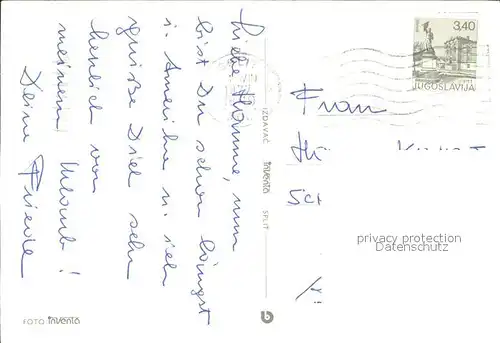 Liebe Hanne, nun
bist Du schon längst
i. Amerika u. ich
grüße Dich sehr
herzlich von
meinem Urlaub!
Deine Friedl
FOTO inventa
IZDAVAČ inventa SPLIT
3,40
JUGOSLAVIJA
Frau
privacy protection
Datenschutz